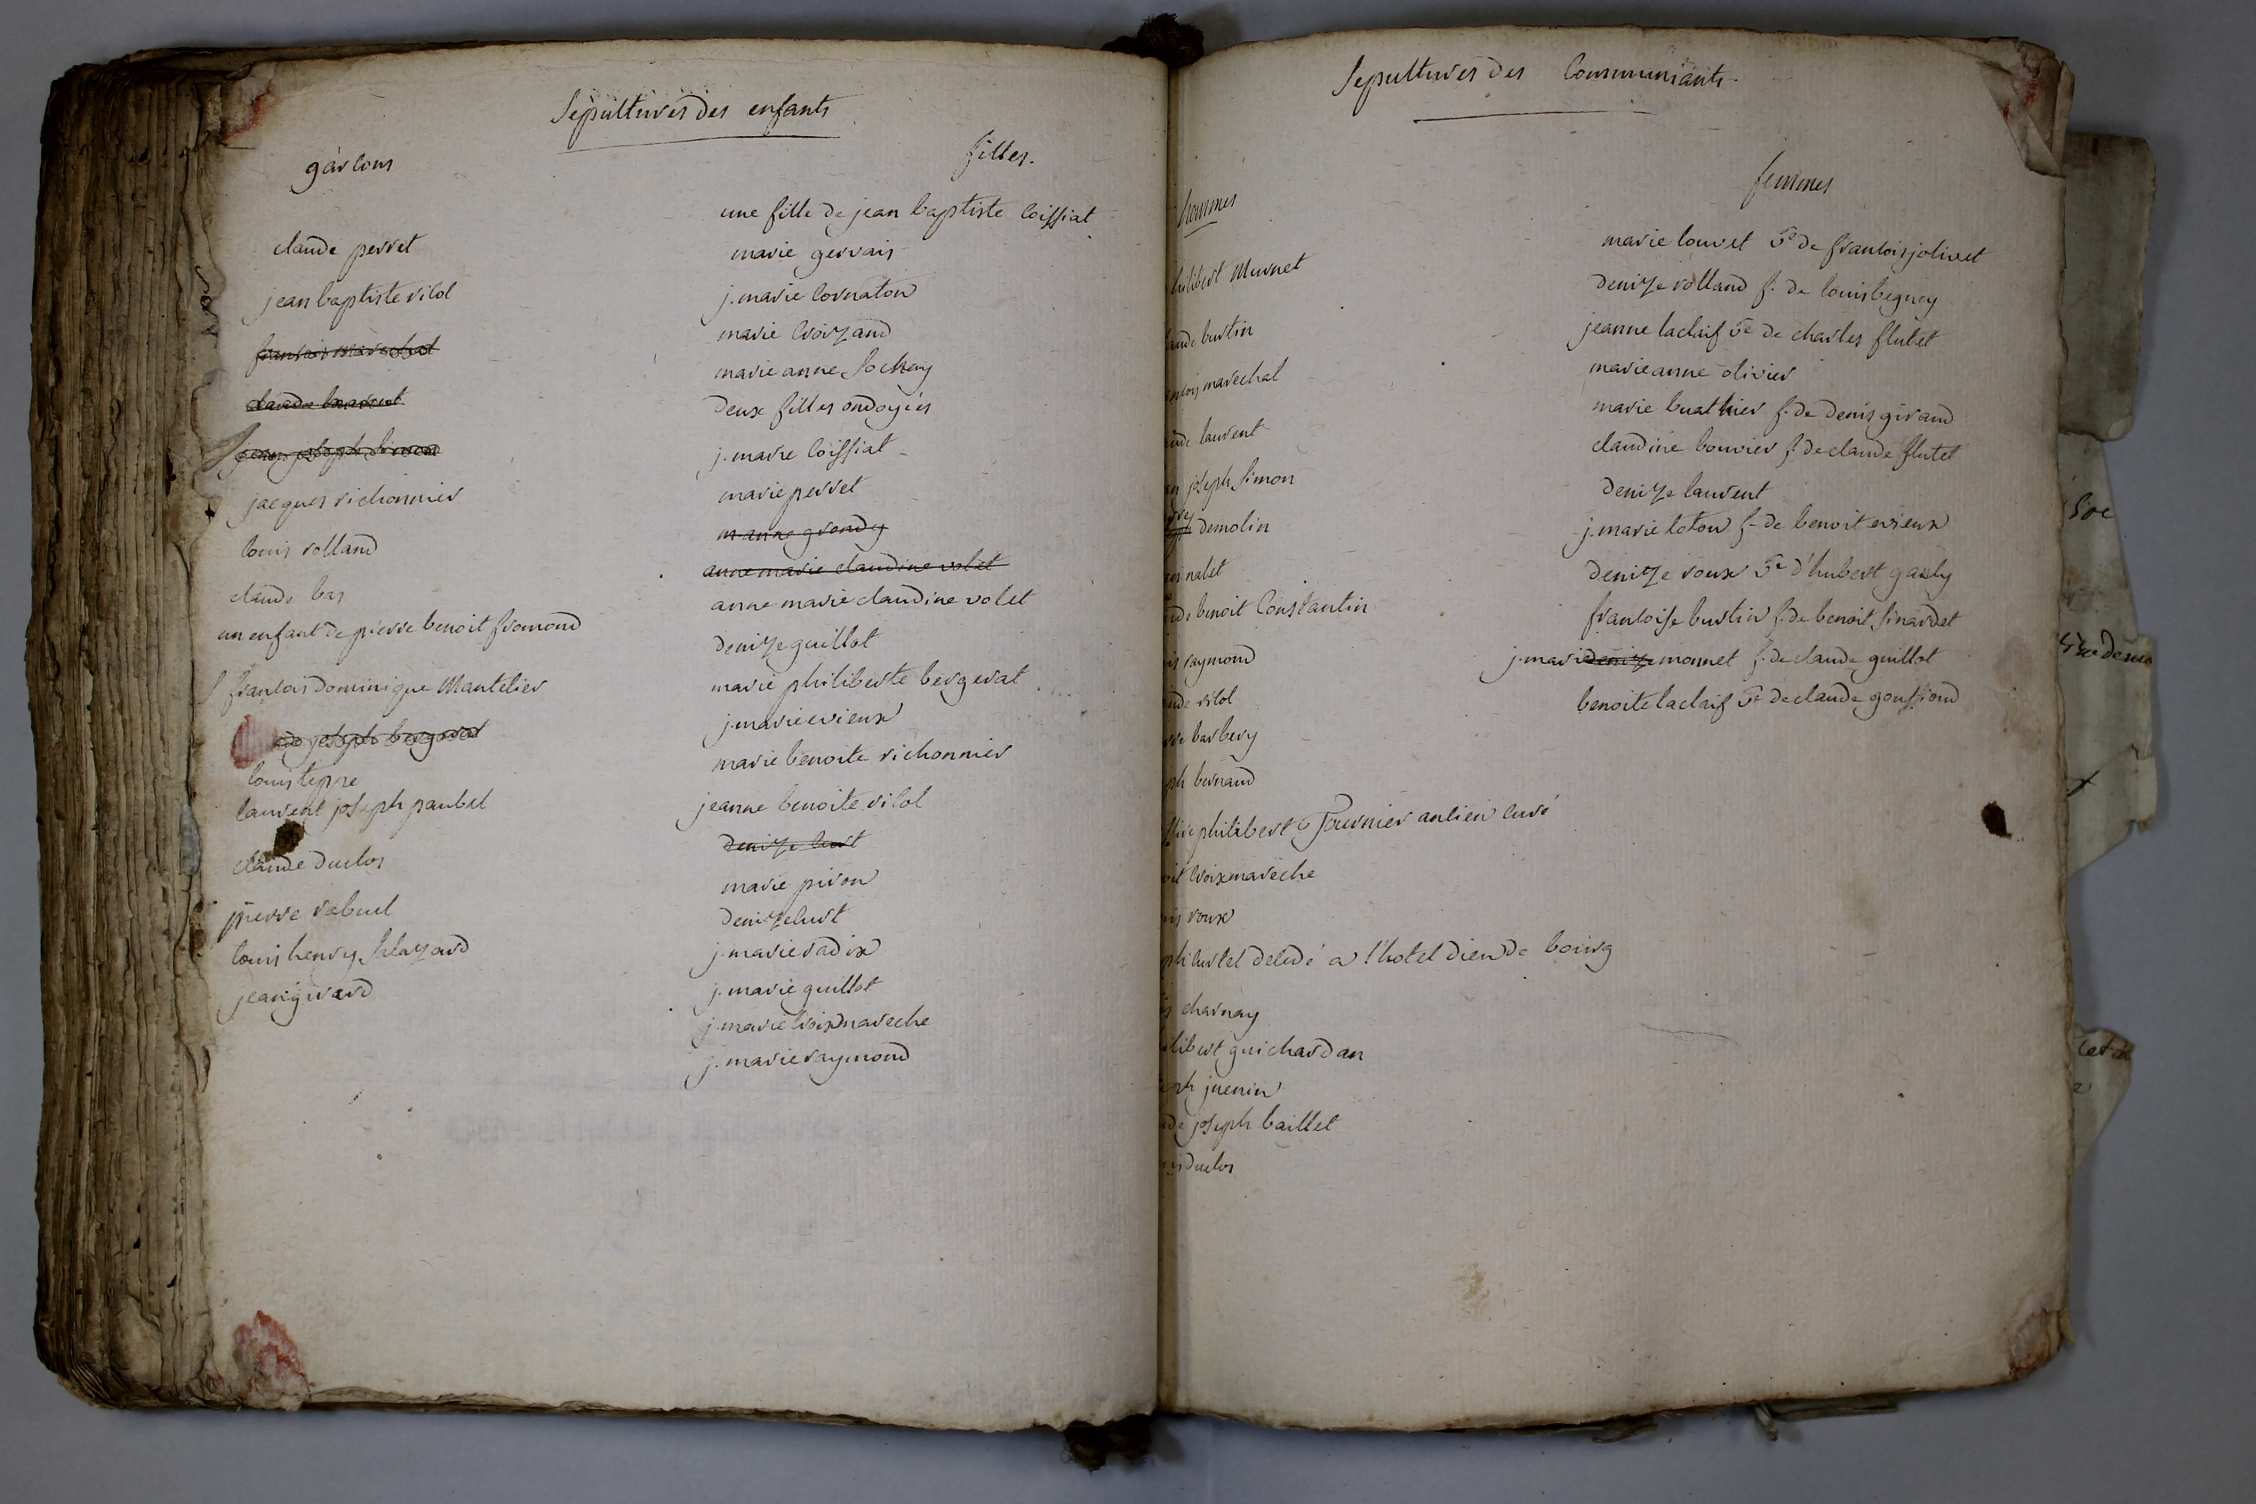 Sépultures des enfants
garcons
filles.
claude perret
jean baptiste vilol
francois marechal
jean joseph Simon
jacques richonnier
louis rolland
claude bas
un enfant de pierre benoit fromond
francois dominique Mantelier
joseph bergerat
louis teppe
laurent joseph paubel
claude duclos
pierre rebuel
louis henry
jean girard
une fille de jean baptiste Coissiat
marie gervais
j. marie Cornaton
marie Croizand
marie anne
deux filles ondoyées
j. marie Coissiat
marie perret
m. anne grondy
anne marie claudine volet
anne marie claudine volet
denize guillot
marie philiberte bergerat
j. marie evieux
marie benoite richonnier
jeanne benoite vilol
denize curt
marie piron
denize curt
j. marie radix
j. marie guillot
j. marie Croixmareche
j. marie raymond
Sepultures des Communiants.
hommes
femmes
hilibert Murnet
aude burtin
ancois marechal
aude laurent
an joseph Simon
demolin
nalet
ude benoit Constantin
is raymond
ude vilol
rre barbery
ph bernand
ssire philibert Fournier ancien curé
oit Croixmareche
is roux
ph curtel décédé a l'hotel dieu de bourg
is charnay
ilibert guichardan
eph juenin
ude joseph baillet
is duclos
marie louvet Ve de francois jolivet
denize rolland f. de louis beguey
jeanne laclaif Ve de charles flutet
marie anne olivier
marie buathier f. de denis giraud
claudine bouvier f. de claude flutet
denize laurent
j. marie loton f. de benoit evieux
denize roux Ve d'hubert gauly
francoise burtin f. de benoit Sinardet
j. marie denize monnet f. de claude guillot
benoite laclaif Ve de claude goussiond